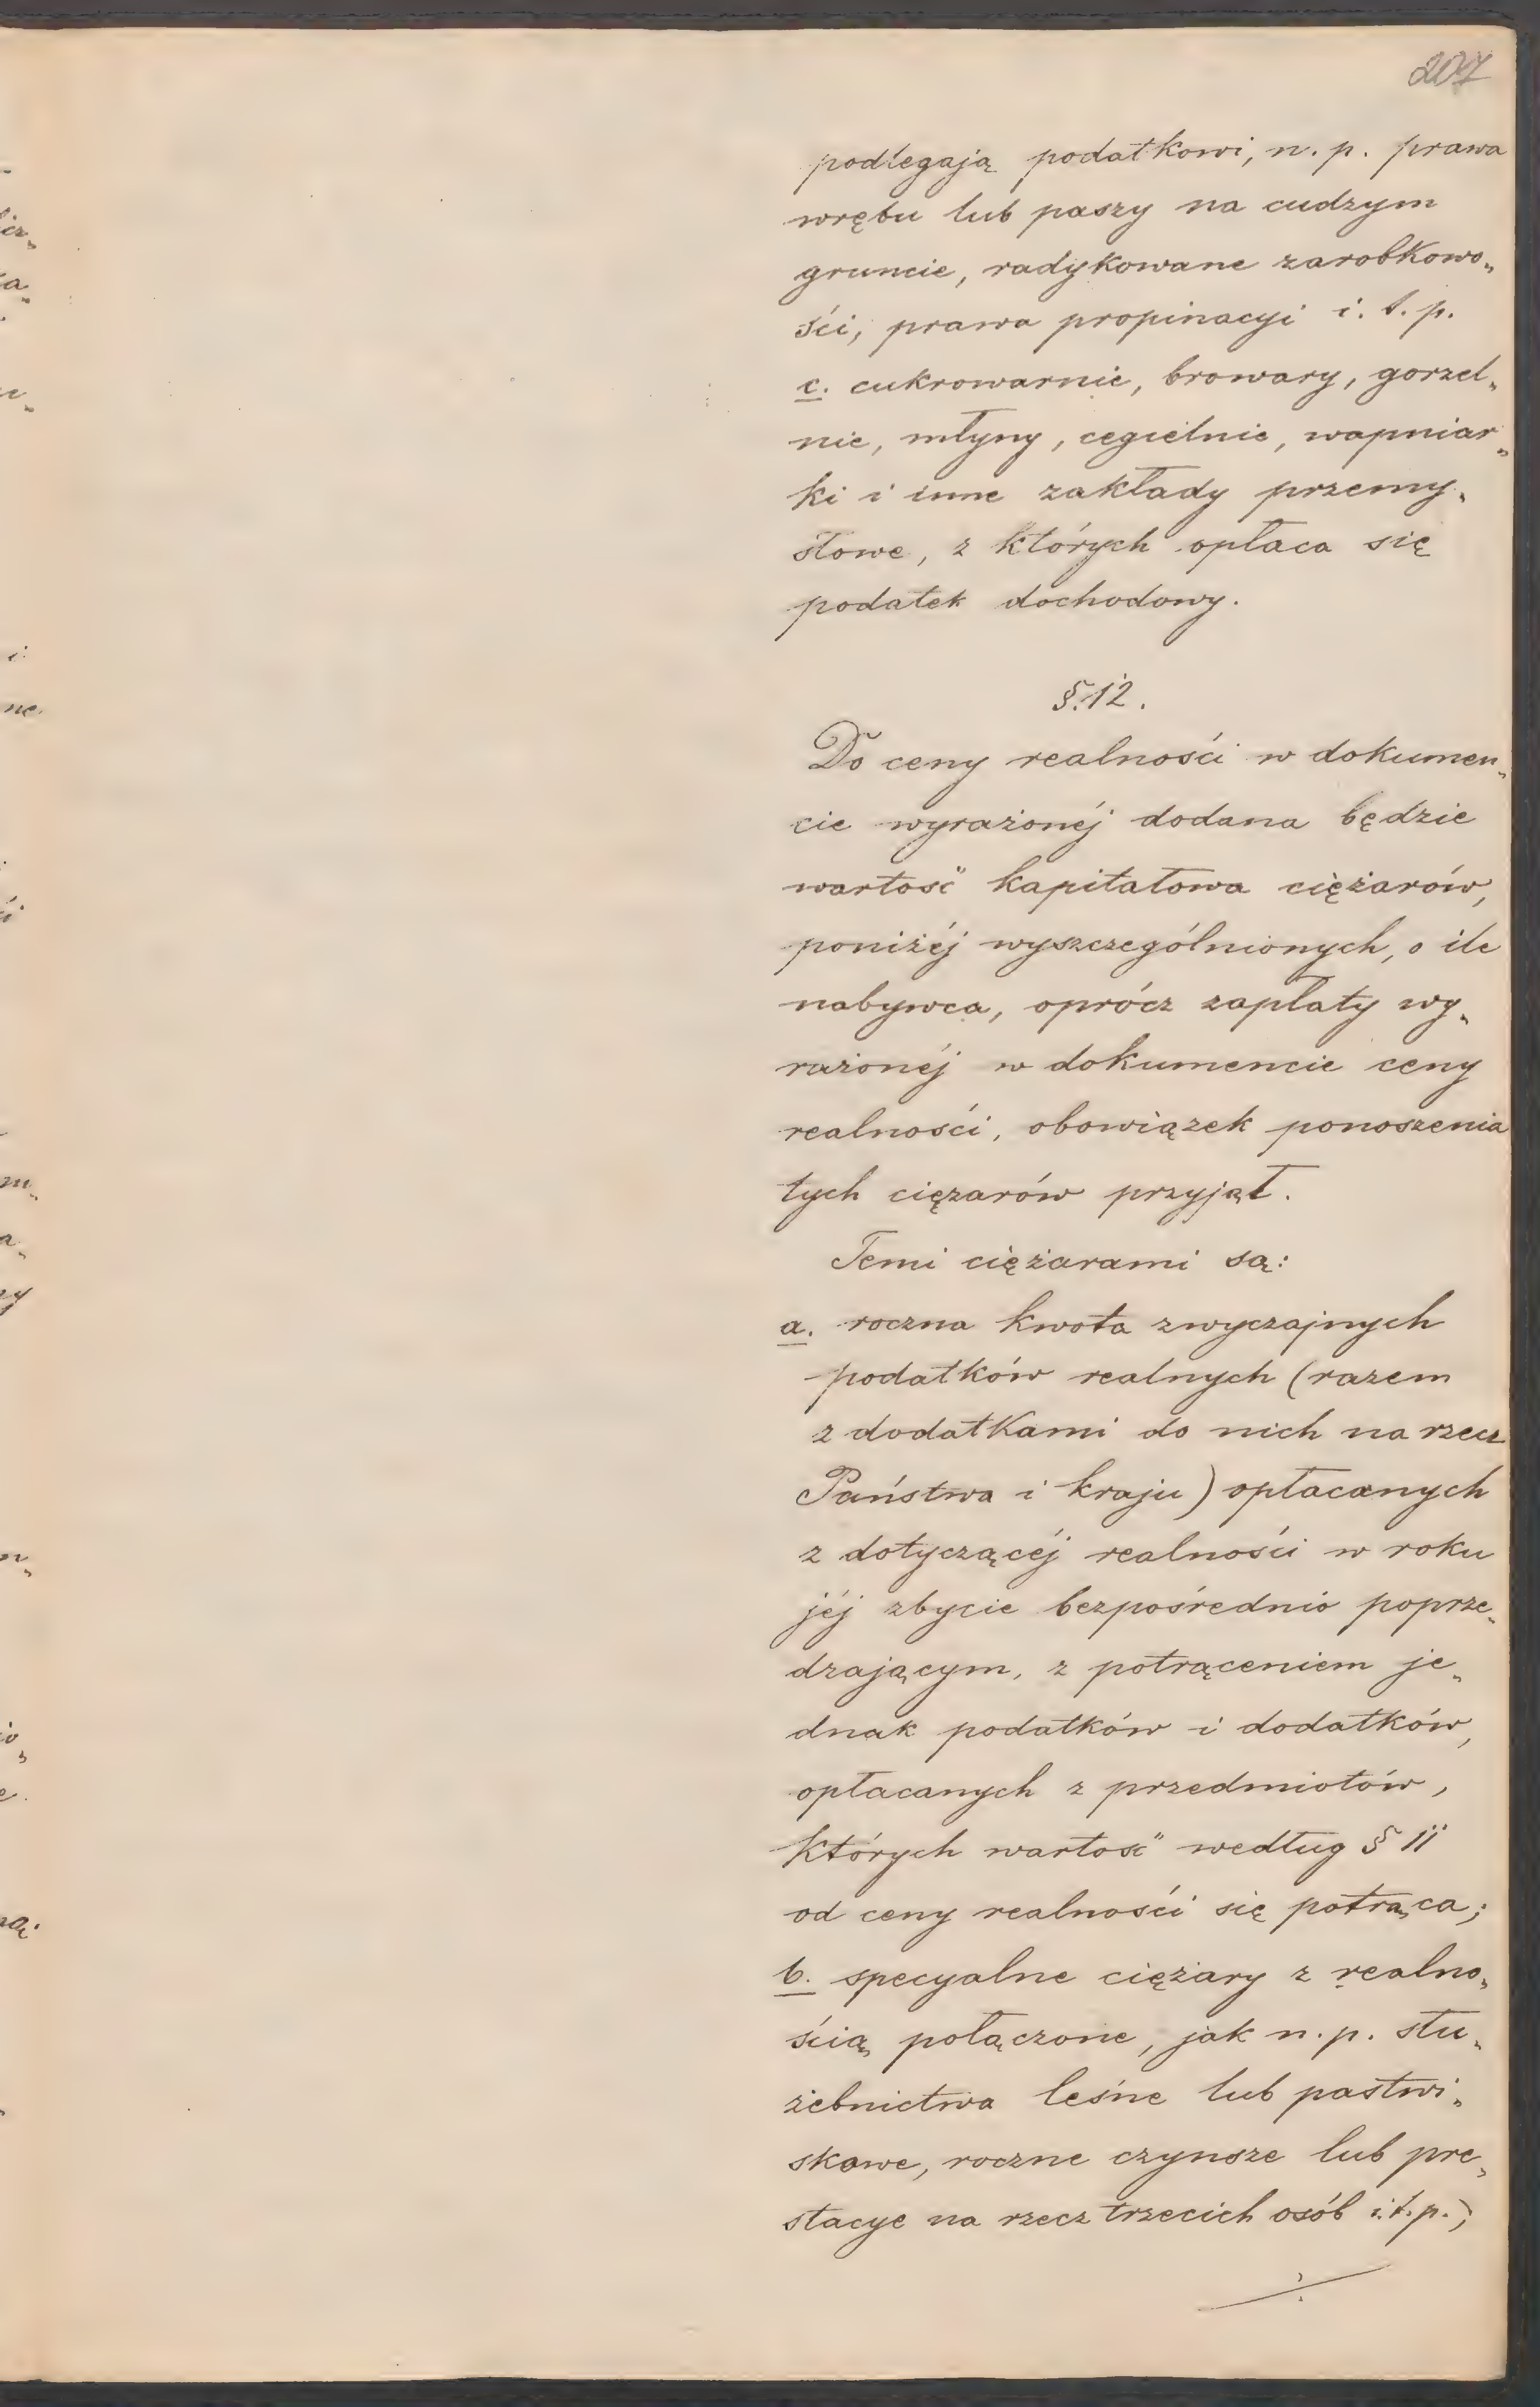 207
podlegają podatkowi, n. p. prawa
wrębu lub paszy na cudzym
gruncie, radykowane zarobkowo„
ści, prawa propinacyi i. t. p.
c. cukrowarnie, browary, gorzel„
nie, młyny, cegielnie, wapniar„
ki i inne zakłady przemy„
słowe, z których opłaca się
podatek dochodowy.
§. 12.
Do ceny realności w dokumen„
cie wyrażonéj dodana będzie
wartość kapitałowa ciężarów,
poniżéj wyszczególnionych, o ile
nabywca, oprócz zapłaty wy„
rażonéj w dokumencie ceny
realności, obowiązek ponoszenia
tych ciężarów przyjął.
Temi ciężarami są:
a. roczna kwota zwyczajnych
podatków realnych (razem
z dodatkami do nich na rzecz
Państwa i kraju) opłacanych
z dotyczącéj realności w roku
jéj zbycie bezpośrednio poprze„
dzającym, z potrąceniem je„
dnak podatków i dodatków,
opłacanych z przedmiotów,
których wartość według § 11
od ceny realności się potrąca;
b. specyalne ciężary z realno„
ścią połączone, jak n. p. słu„
żebnictwa leśne lub pastwi„
skowe, roczne czynsze lub pre„
stacye na rzecz trzecich osób i. t. p.;